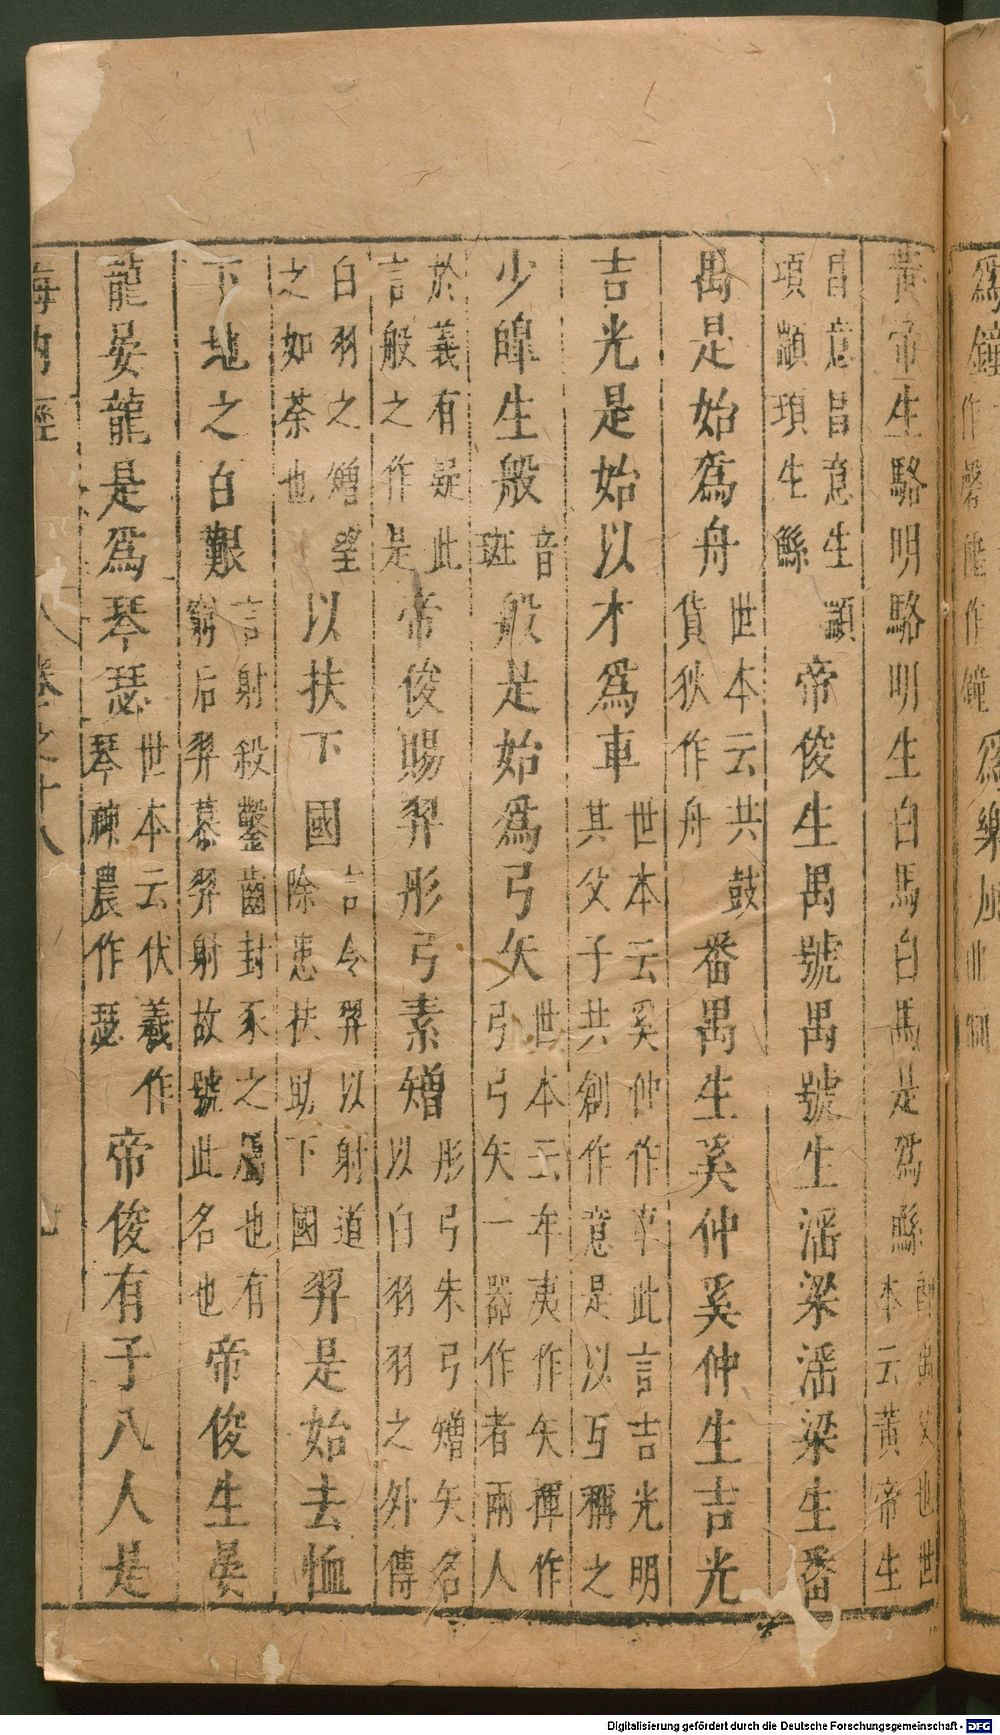 黃帝生駱明駱明生白馬白馬是爲鯀卽禹父也世本云黃帝生
昌意昌意生顓項顓頊生鯀帝俊生禺號禺號生滛梁滛梁生番
禺是始爲舟世本云共鼓貨狄作舟番禺生奚仲奚仲生吉光
吉光是始以才爲車世本云奚仲作車此言吉光明其父子共創作意是以互稱之
少皥生般音班般是始爲弓矢世本云牟夷作矢揮作弓弓矢一器作者兩人
於義有疑此言般之作是帝俊賜羿彤弓素矰彤弓朱弓矰矢名以白羽羽之外傳
白羽之矰望之如荼也以扶下國言令羿以射道除患扶助下國羿是始去恤
下地之百艱言射殺鑿齒封豕之屬也有窮后羿慕羿射故號此名也帝俊生晏
龍晏龍是爲琴瑟世本云伏羲作琴神農作瑟帝俊有子八人是
海內經 卷之十八
爲鐘
爲樂風
Digitalisierung gefördert durch die Deutsche Forschungsgemeinschaft - DFG